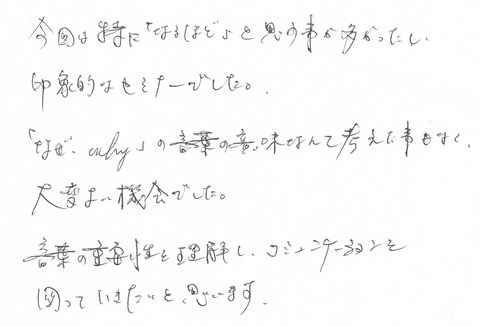 今回は特に「なるほど」と思う事が多かったし、
印象的なセミナーでした。
「なぜ・why」の言葉の意味なんて考えた事もなく、
大変よい機会でした。
言葉の重要性を理解し、コミュニケーションを
図っていきたいと思います。